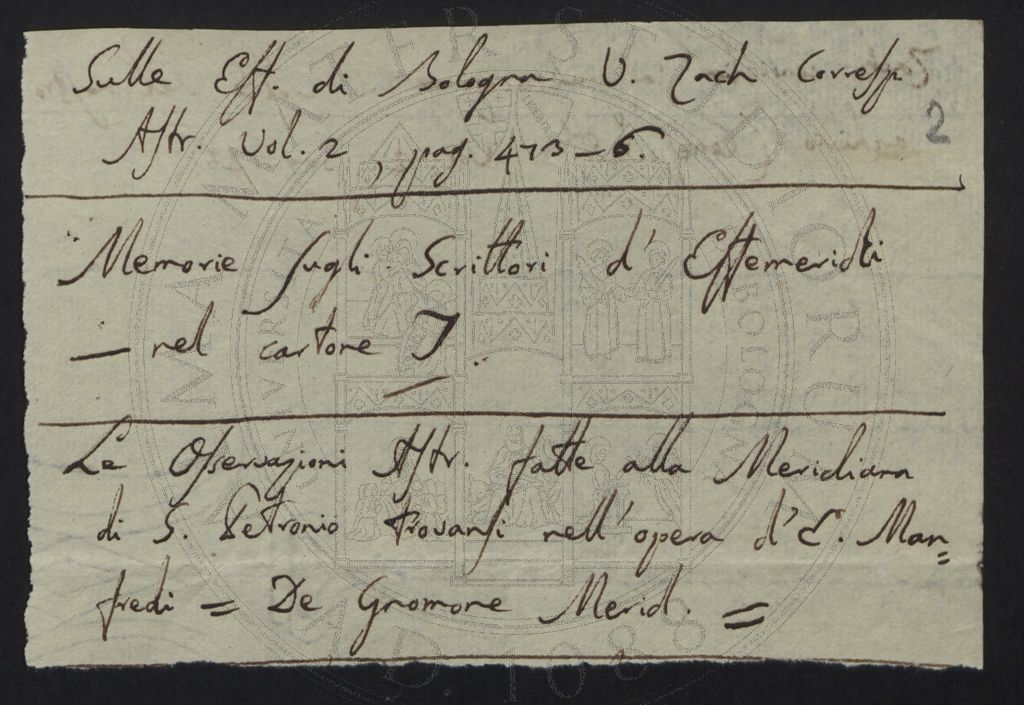 Sulle Eff. di Bologna V. Zach Corresp.
Astr. Vol. 2, pag. 473-6.
2
Memorie sugli Scrittori d' Effemeridi
— nel cartone J
Le Osservazioni Astr. fatte alla Meridiana
di S. Petronio trovansi nell' opera d' E. Man=
fredi = De Gnomone Merid. =
ALMA MATER STUDIORUM
A.D. 1088